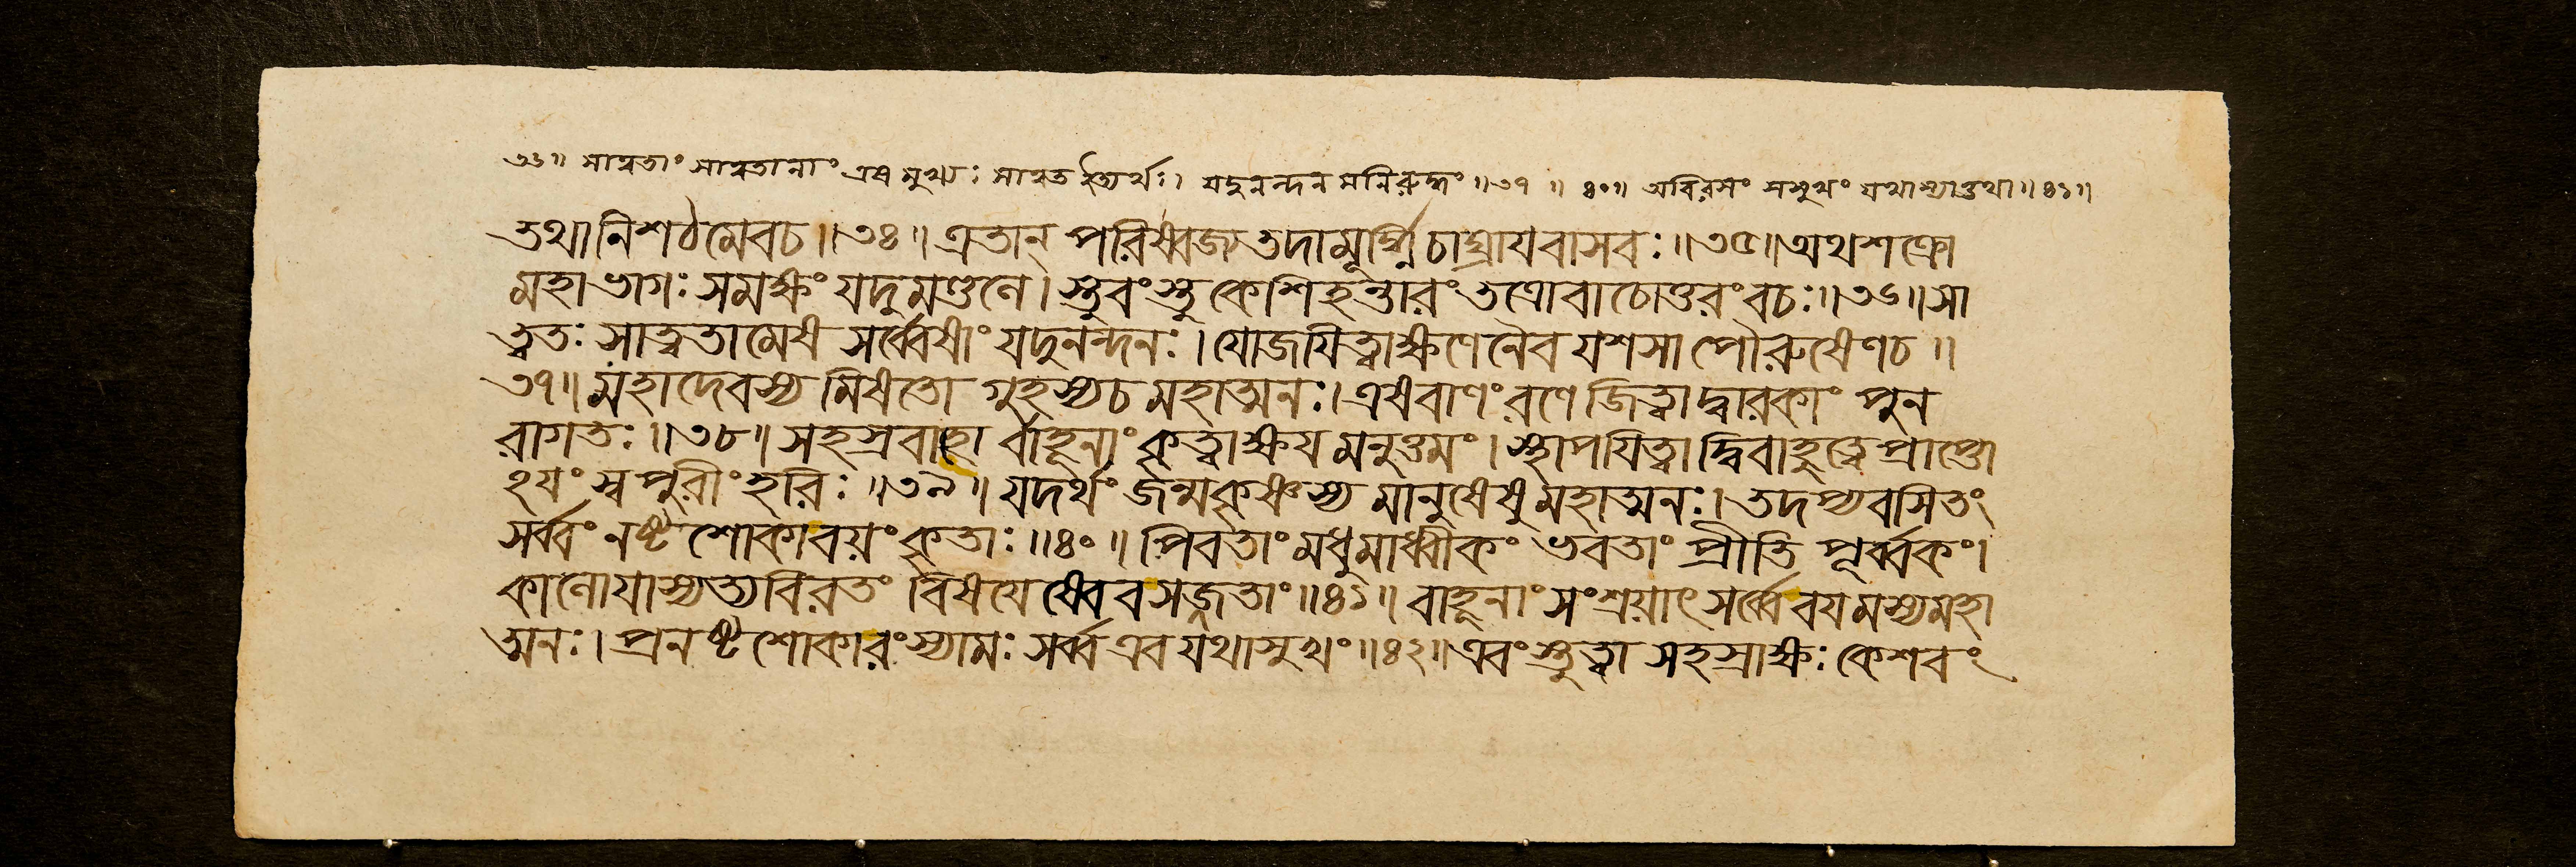 ৩৬॥ সাত্বতাং সাত্বতানাং এষ মুখ্যঃ সাত্বত ইত্যর্থঃ। যদুনন্দন মনিরুদ্ধং॥৩৭॥ ৪০॥ অবিরসং সসুখং যথাস্যাত্তথা॥৪১॥
তথানিশঠমেবচ॥৩৪॥এতান্ পরিষ্বজ্য তদামূর্ধ্নিচাঘ্রাযবাসবঃ॥৩৫॥অথশক্রো
মহাভাগঃ সমক্ষং যদুমণ্ডনে। স্তুবংস্তু কেশিহন্তারং তত্রোবাচোত্তরংবচঃ॥৩৬॥সা
ত্বতঃ সাত্বতামেষ সর্ব্বেষাং যদুনন্দনঃ। যোজযিত্বাক্ষণেনৈব যশসা পৌরুষেণচ॥
৩৭॥ মহাদেবস্য মিষতো গুহস্যচ মহাত্মনঃ। এষবাণং রণে জিত্বাদ্বারকাং পুন
রাগতঃ॥৩৮॥ সহস্রবাহো র্বাহূনাং কৃত্বাক্ষয মনুত্তমং। স্থাপযিত্বা দ্বিবাহুত্বেপ্রাপ্তো
ঽযং স্বপুরীং হরিঃ॥৩৯॥ যদর্থং জন্মকৃষ্ণস্য মানুষেষু মহাত্মনঃ। তদপ্যবসিতং
সর্ব্বং নষ্টশোকাবয়ংকৃতাঃ॥৪০॥ পিবতাং মধুমাধ্বীকং ভবতাং প্রীতি পূর্ব্বকং।
কালোযাস্যত্যবিরতং বিষযেষ্বেব সজ্জতাং॥৪১॥ বাহূনাং সংশ্রয়াৎ সর্ব্বেবযমস্যমহা
ত্মনঃ। প্রনষ্টশোকারংস্যামঃ সর্ব্ব এব যথাসুখং॥৪২॥এবংস্তুত্বা সহস্রাক্ষঃ কেশবং